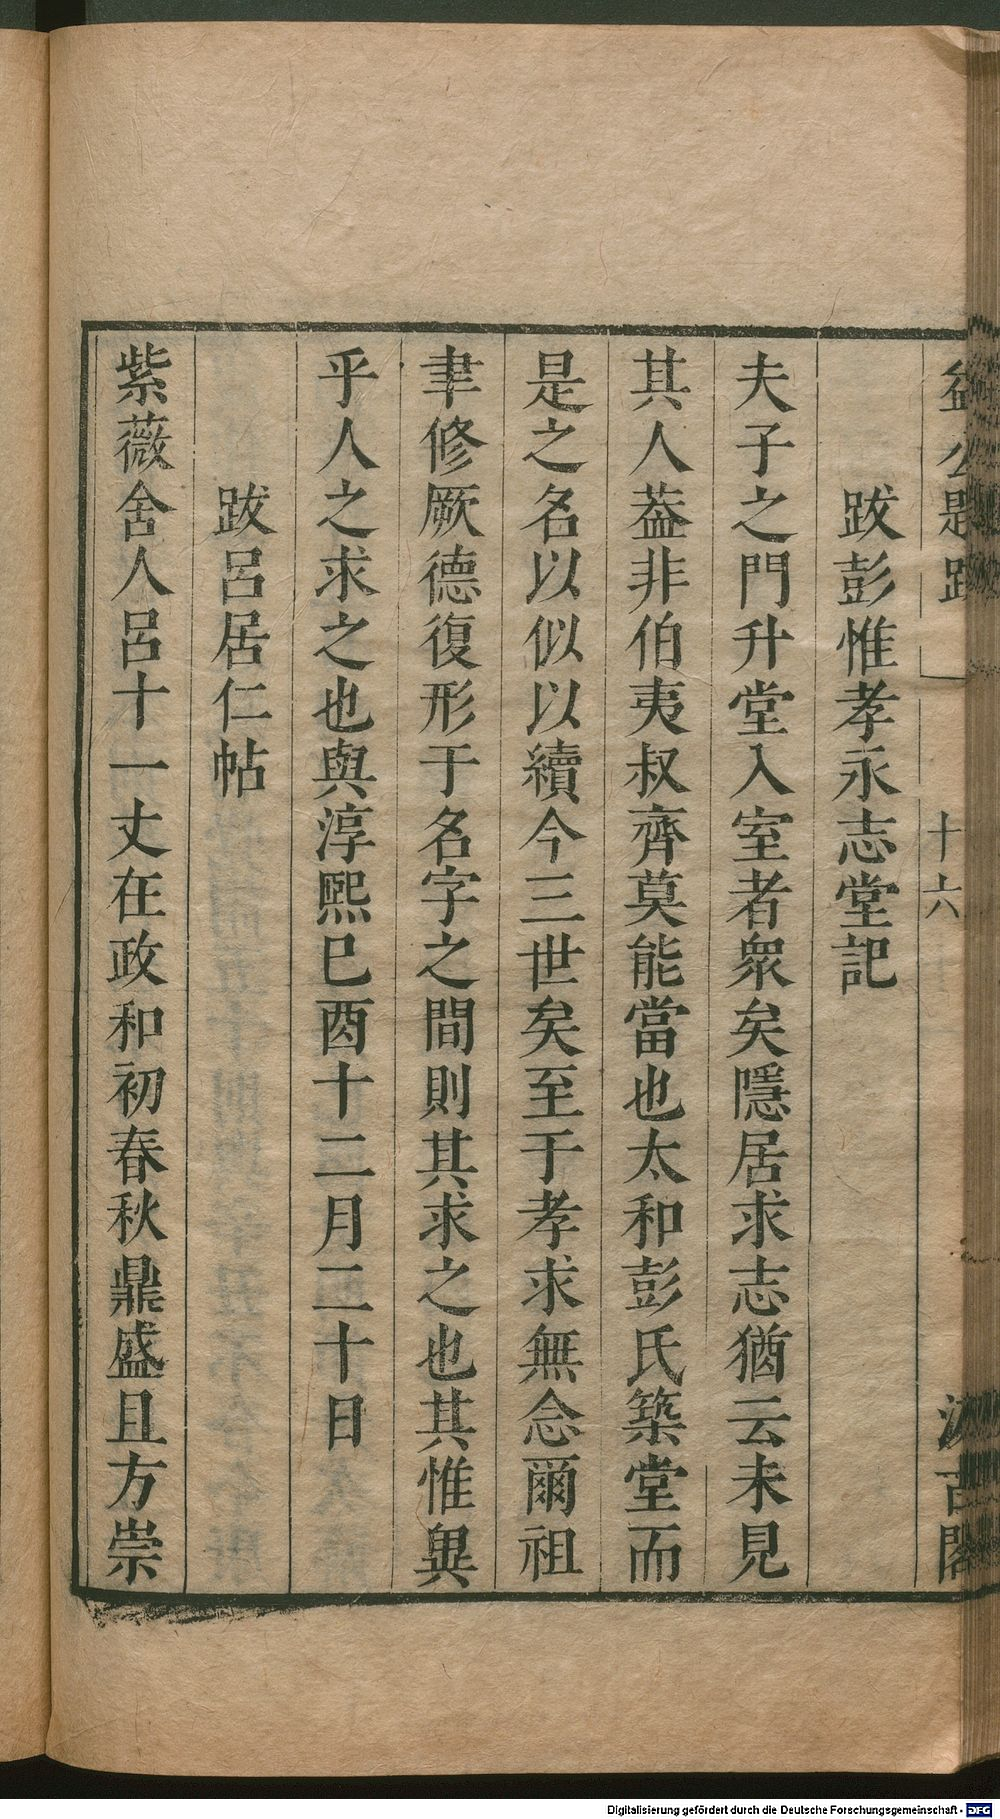 益公題跋
十六
汲古閣
跋彭惟孝永志堂記
夫子之門升堂入室者衆矣隱居求志猶云未見
其人葢非伯夷叔齊莫能當也太和彭氏築堂而
是之名以似以續今三世矣至于孝求無念爾祖
聿修厥德復形于名字之間則其求之也其惟異
乎人之求之也與淳熙巳酉十二月二十日
跋呂居仁帖
紫薇舍人呂十一丈在政和初春秋鼎盛且方崇
Digitalisierung gefördert durch die Deutsche Forschungsgemeinschaft - DFG